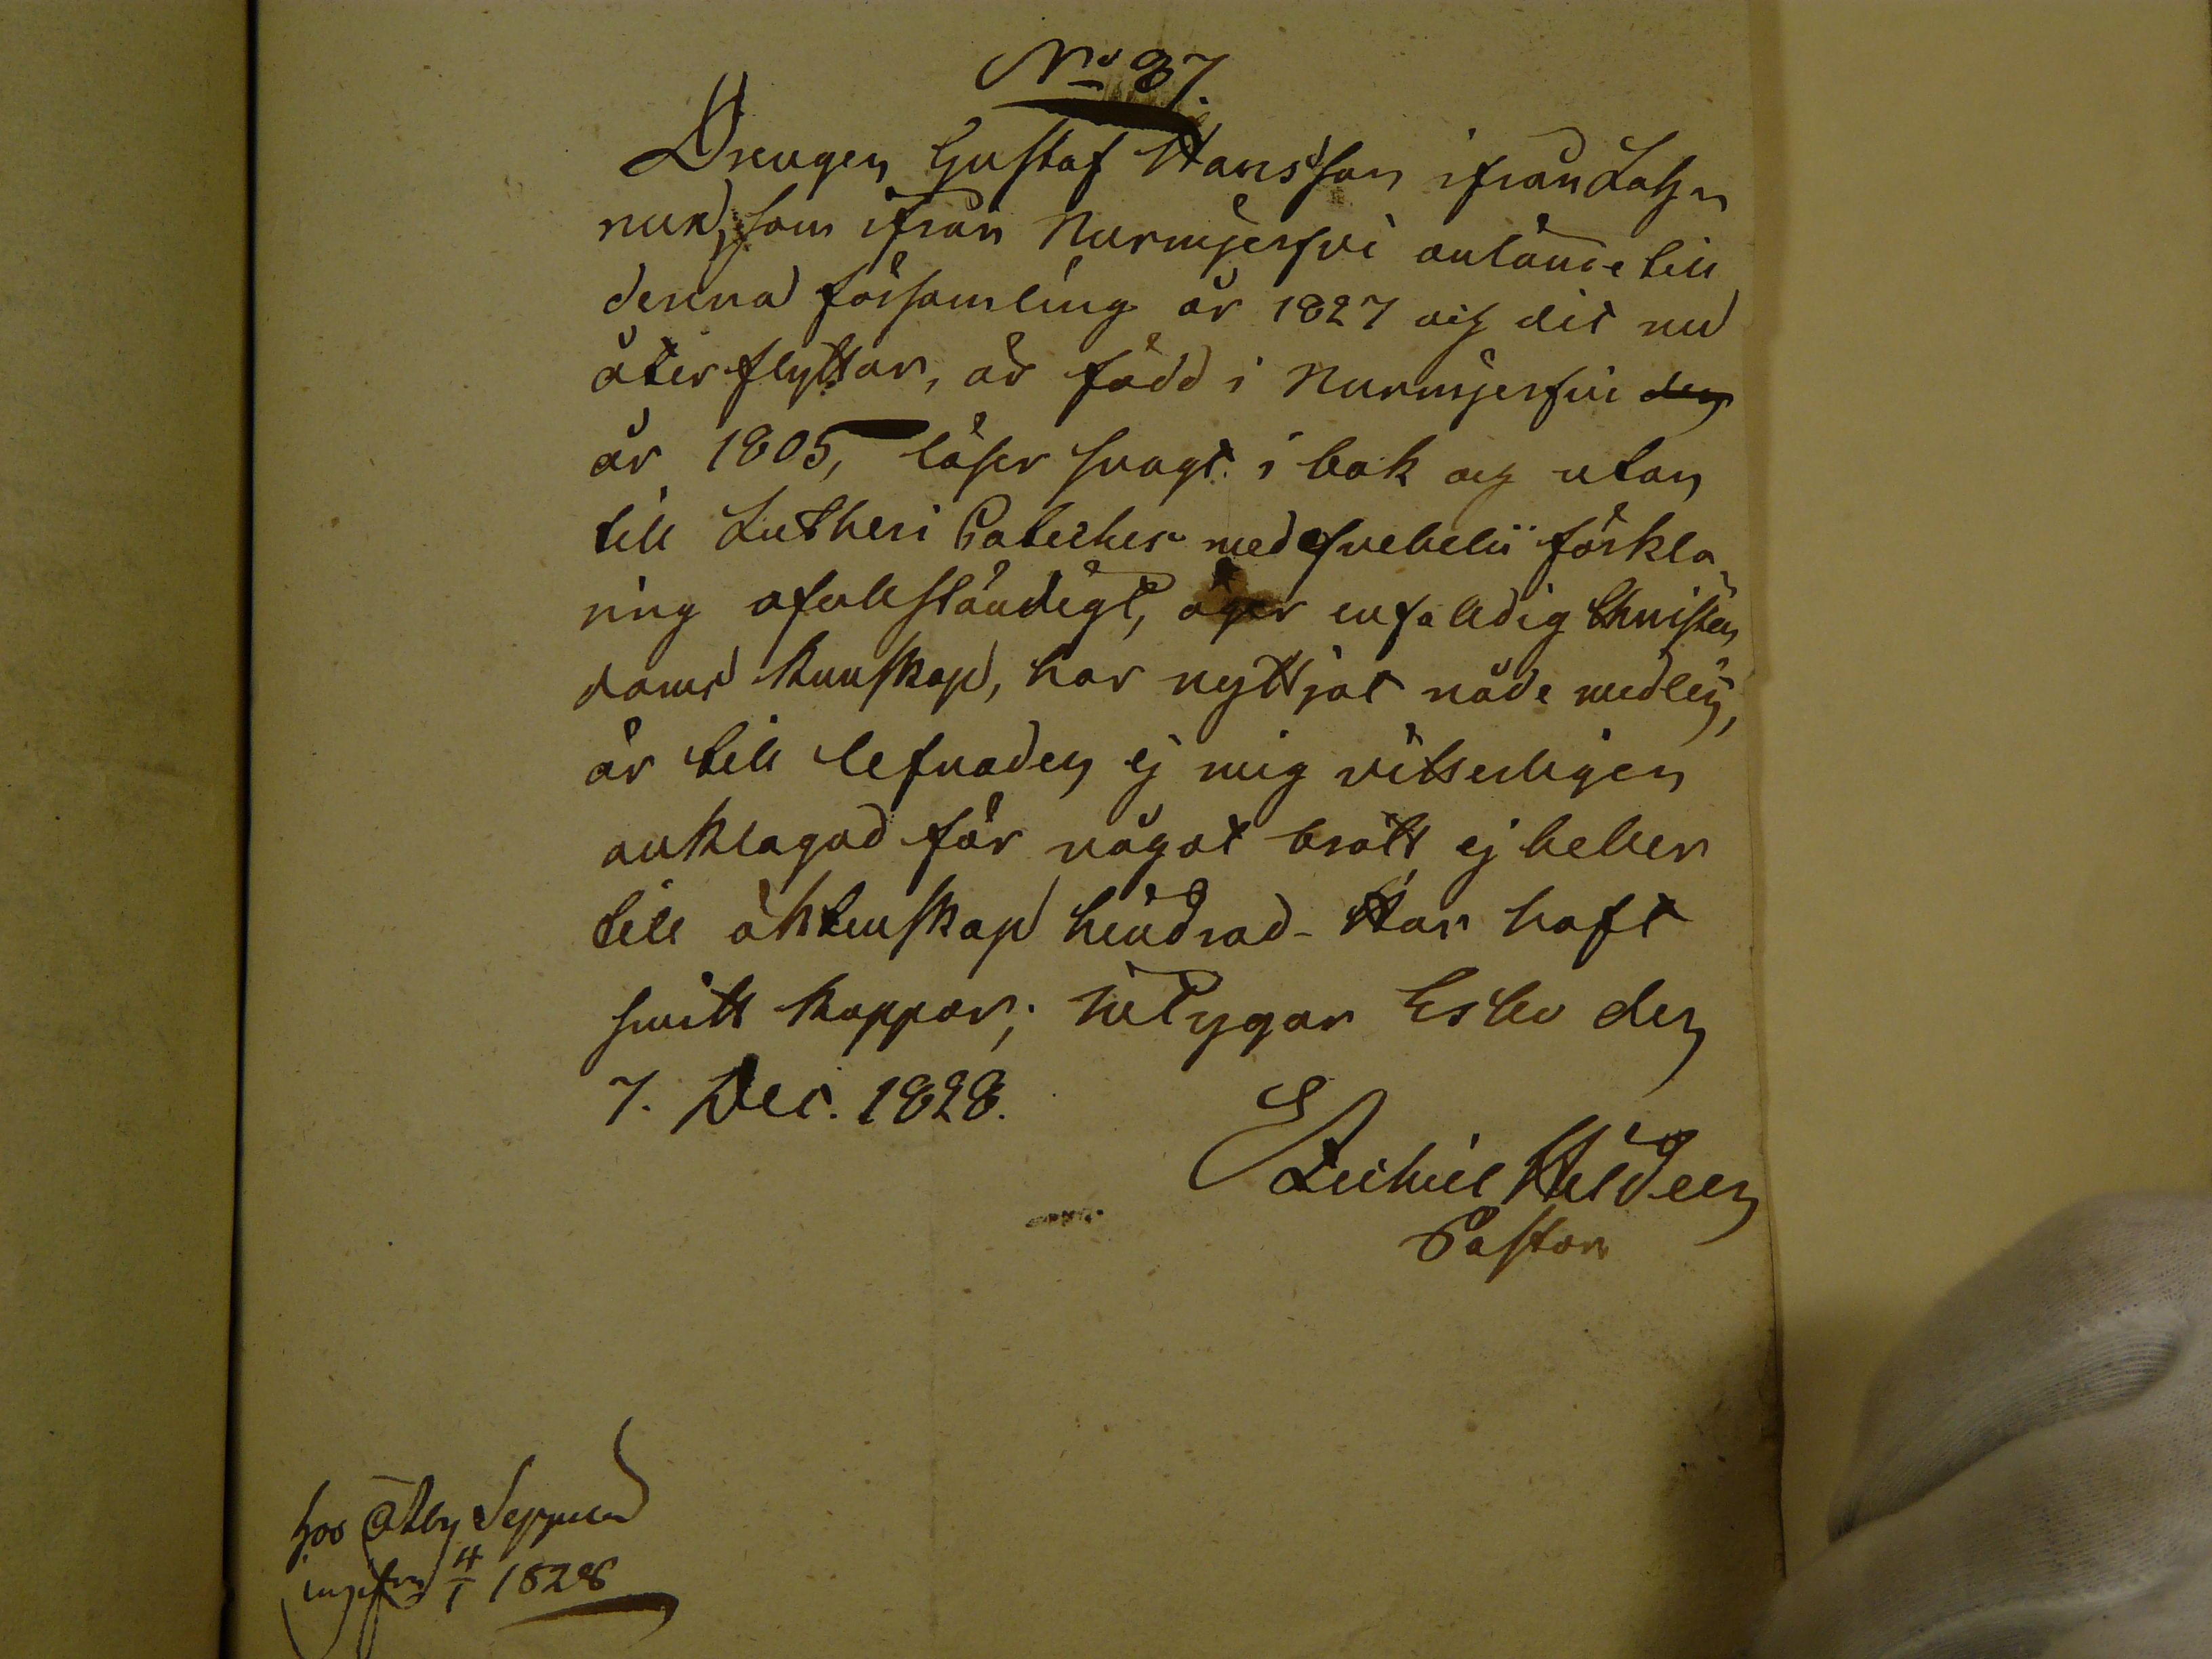 No 37.
Drengen Gustaf Hansson ifrån Lahn
nus, som ifrån Nurmijerfvi anlände till
denna församling år 1827 och dit nu
återflyttar, är född i Nurmijerfvi den
år 1805, läser svagt i bok och utan
till Lutheri Cateches med Svebelii förkla
ring ofullständigt, äger enfaldig Christen
doms kunskap, har nyttjat nådemedlen,
är till lefnaden ej mig vitterligen
anklagad för något brott ej heller
till äktenskap hindrad - Har haft
smitt koppor; betygar Esbo den
7. Dec. 1828.
Ezechiel Hildeen
Pastor
hos Åtby Seppälä
ingifven 4/1 1828